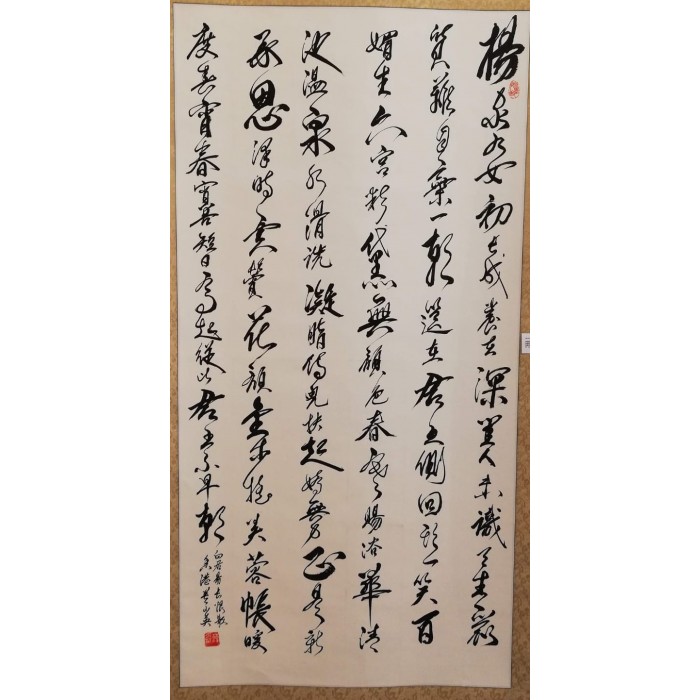 楊家有女初長成養在深閨人未識天生麗
質難自棄一朝選在君王側回頭一笑百
媚生六宮粉黛無顏色春寒賜浴華清
池溫泉水滑洗凝脂侍兒扶起嬌無力正是新
承恩澤時雲鬢花顏金步搖芙蓉帳暖
度春宵春宵苦短日高起從此君王不早朝
白居易長恨歌
香港